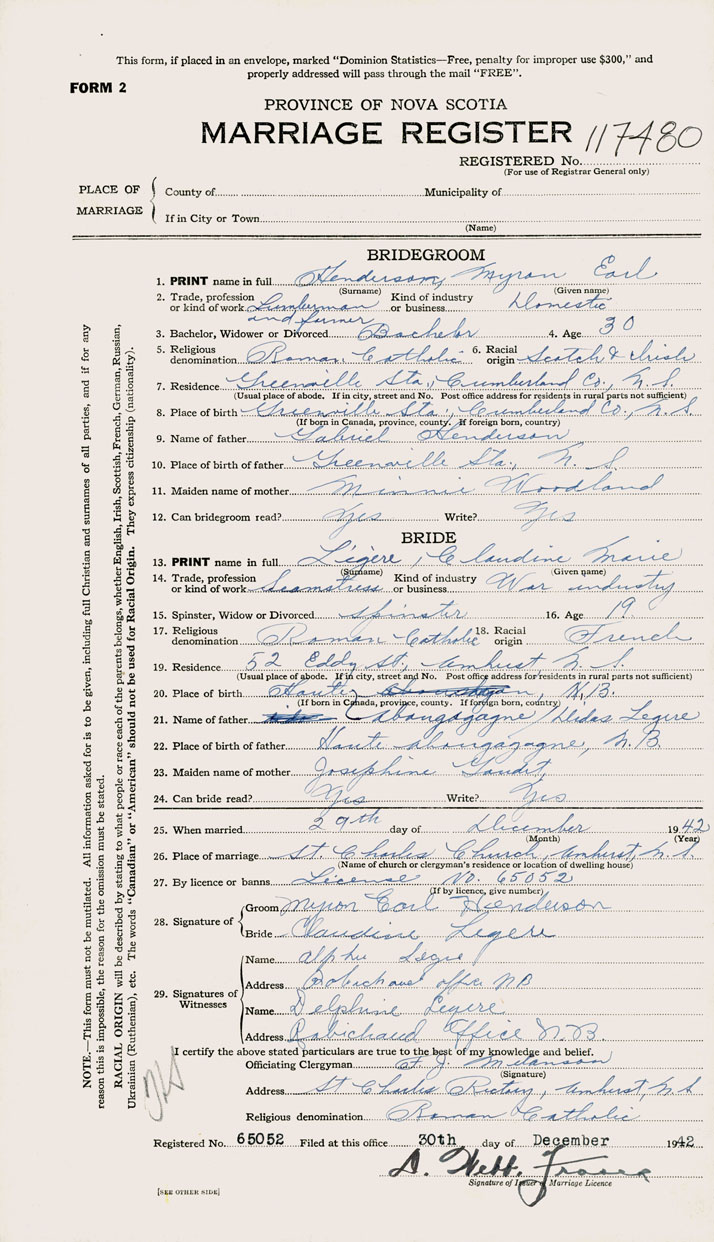 This form, if placed in an envelope, marked “Dominion Statistics—Free, penalty for improper use $300,” and
properly addressed will pass through the mail “FREE”.
FORM 2
PROVINCE OF NOVA SCOTIA
MARRIAGE REGISTER 117480
REGISTERED No.
(For use of Registrar General only)
PLACE OF MARRIAGE
County of Municipality of
If in City or Town
(Name)
BRIDEGROOM
1. PRINT name in full Henderson, Myron Earl
(Surname) (Given name)
2. Trade, profession or kind of work Lumberman and farmer Kind of industry or business Domestic
3. Bachelor, Widower or Divorced Bachelor 4. Age 30
5. Religious denomination Roman Catholic 6. Racial origin Scotch & Irish
7. Residence Greenville Sta., Cumberland Co., N. S.
(Usual place of abode. If in city, street and No. Post office address for residents in rural parts not sufficient)
8. Place of birth Greenville Sta., Cumberland Co., N. S.
(If born in Canada, province, county. If foreign born, country)
9. Name of father Gabriel Henderson
10. Place of birth of father Greenville Sta., N. S.
11. Maiden name of mother Minnie Woodland
12. Can bridegroom read? Yes Write? Yes
BRIDE
13. PRINT name in full Légère, Claudine Marie
(Surname) (Given name)
14. Trade, profession or kind of work Seamstress Kind of industry or business War industry
15. Spinster, Widow or Divorced Spinster 16. Age 19
17. Religious denomination Roman Catholic 18. Racial origin French
19. Residence 52 Eddy St., Amherst N. S.
(Usual place of abode. If in city, street and No. Post office address for residents in rural parts not sufficient)
20. Place of birth Haute N.B.
(If born in Canada, province, county. If foreign born, country)
21. Name of father Abougagagne / Didas Legere
22. Place of birth of father Haute Abougagagne, N.B.
23. Maiden name of mother Josephine Gaudet
24. Can bride read? Yes Write? Yes
25. When married 29th day of December 1942
(Month) (Year)
26. Place of marriage St. Charles Church, Amherst, N.S.
(Name of church or clergyman's residence or location of dwelling house)
27. By licence or banns License No. 65052
(If by licence, give number)
28. Signature of
Groom Myron Earl Henderson
Bride Claudine Legere
29. Signatures of Witnesses
Name Alphe Legere
Address Robichaud office NB
Name Delphine Legere
Address Robichaud Office N.B.
I certify the above stated particulars are true to the best of my knowledge and belief.
Officiating Clergyman F. J. Melanson
(Signature)
Address St Charles Rectory, Amherst, N S
Religious denomination Roman Catholic
Registered No. 65052 Filed at this office 30th day of December 1942
Signature of Issuer of Marriage Licence
[SEE OTHER SIDE]
NOTE.—This form must not be mutilated. All information asked for is to be given, including full Christian and surnames of all parties, and if for any
reason this is impossible, the reason for the omission must be stated.
RACIAL ORIGIN will be described by stating to what people or race each of the parents belongs, whether English, Irish, Scottish, French, German, Russian,
Ukrainian (Ruthenian), etc. The words “Canadian” or “American” should not be used for Racial Origin. They express citizenship (nationality).